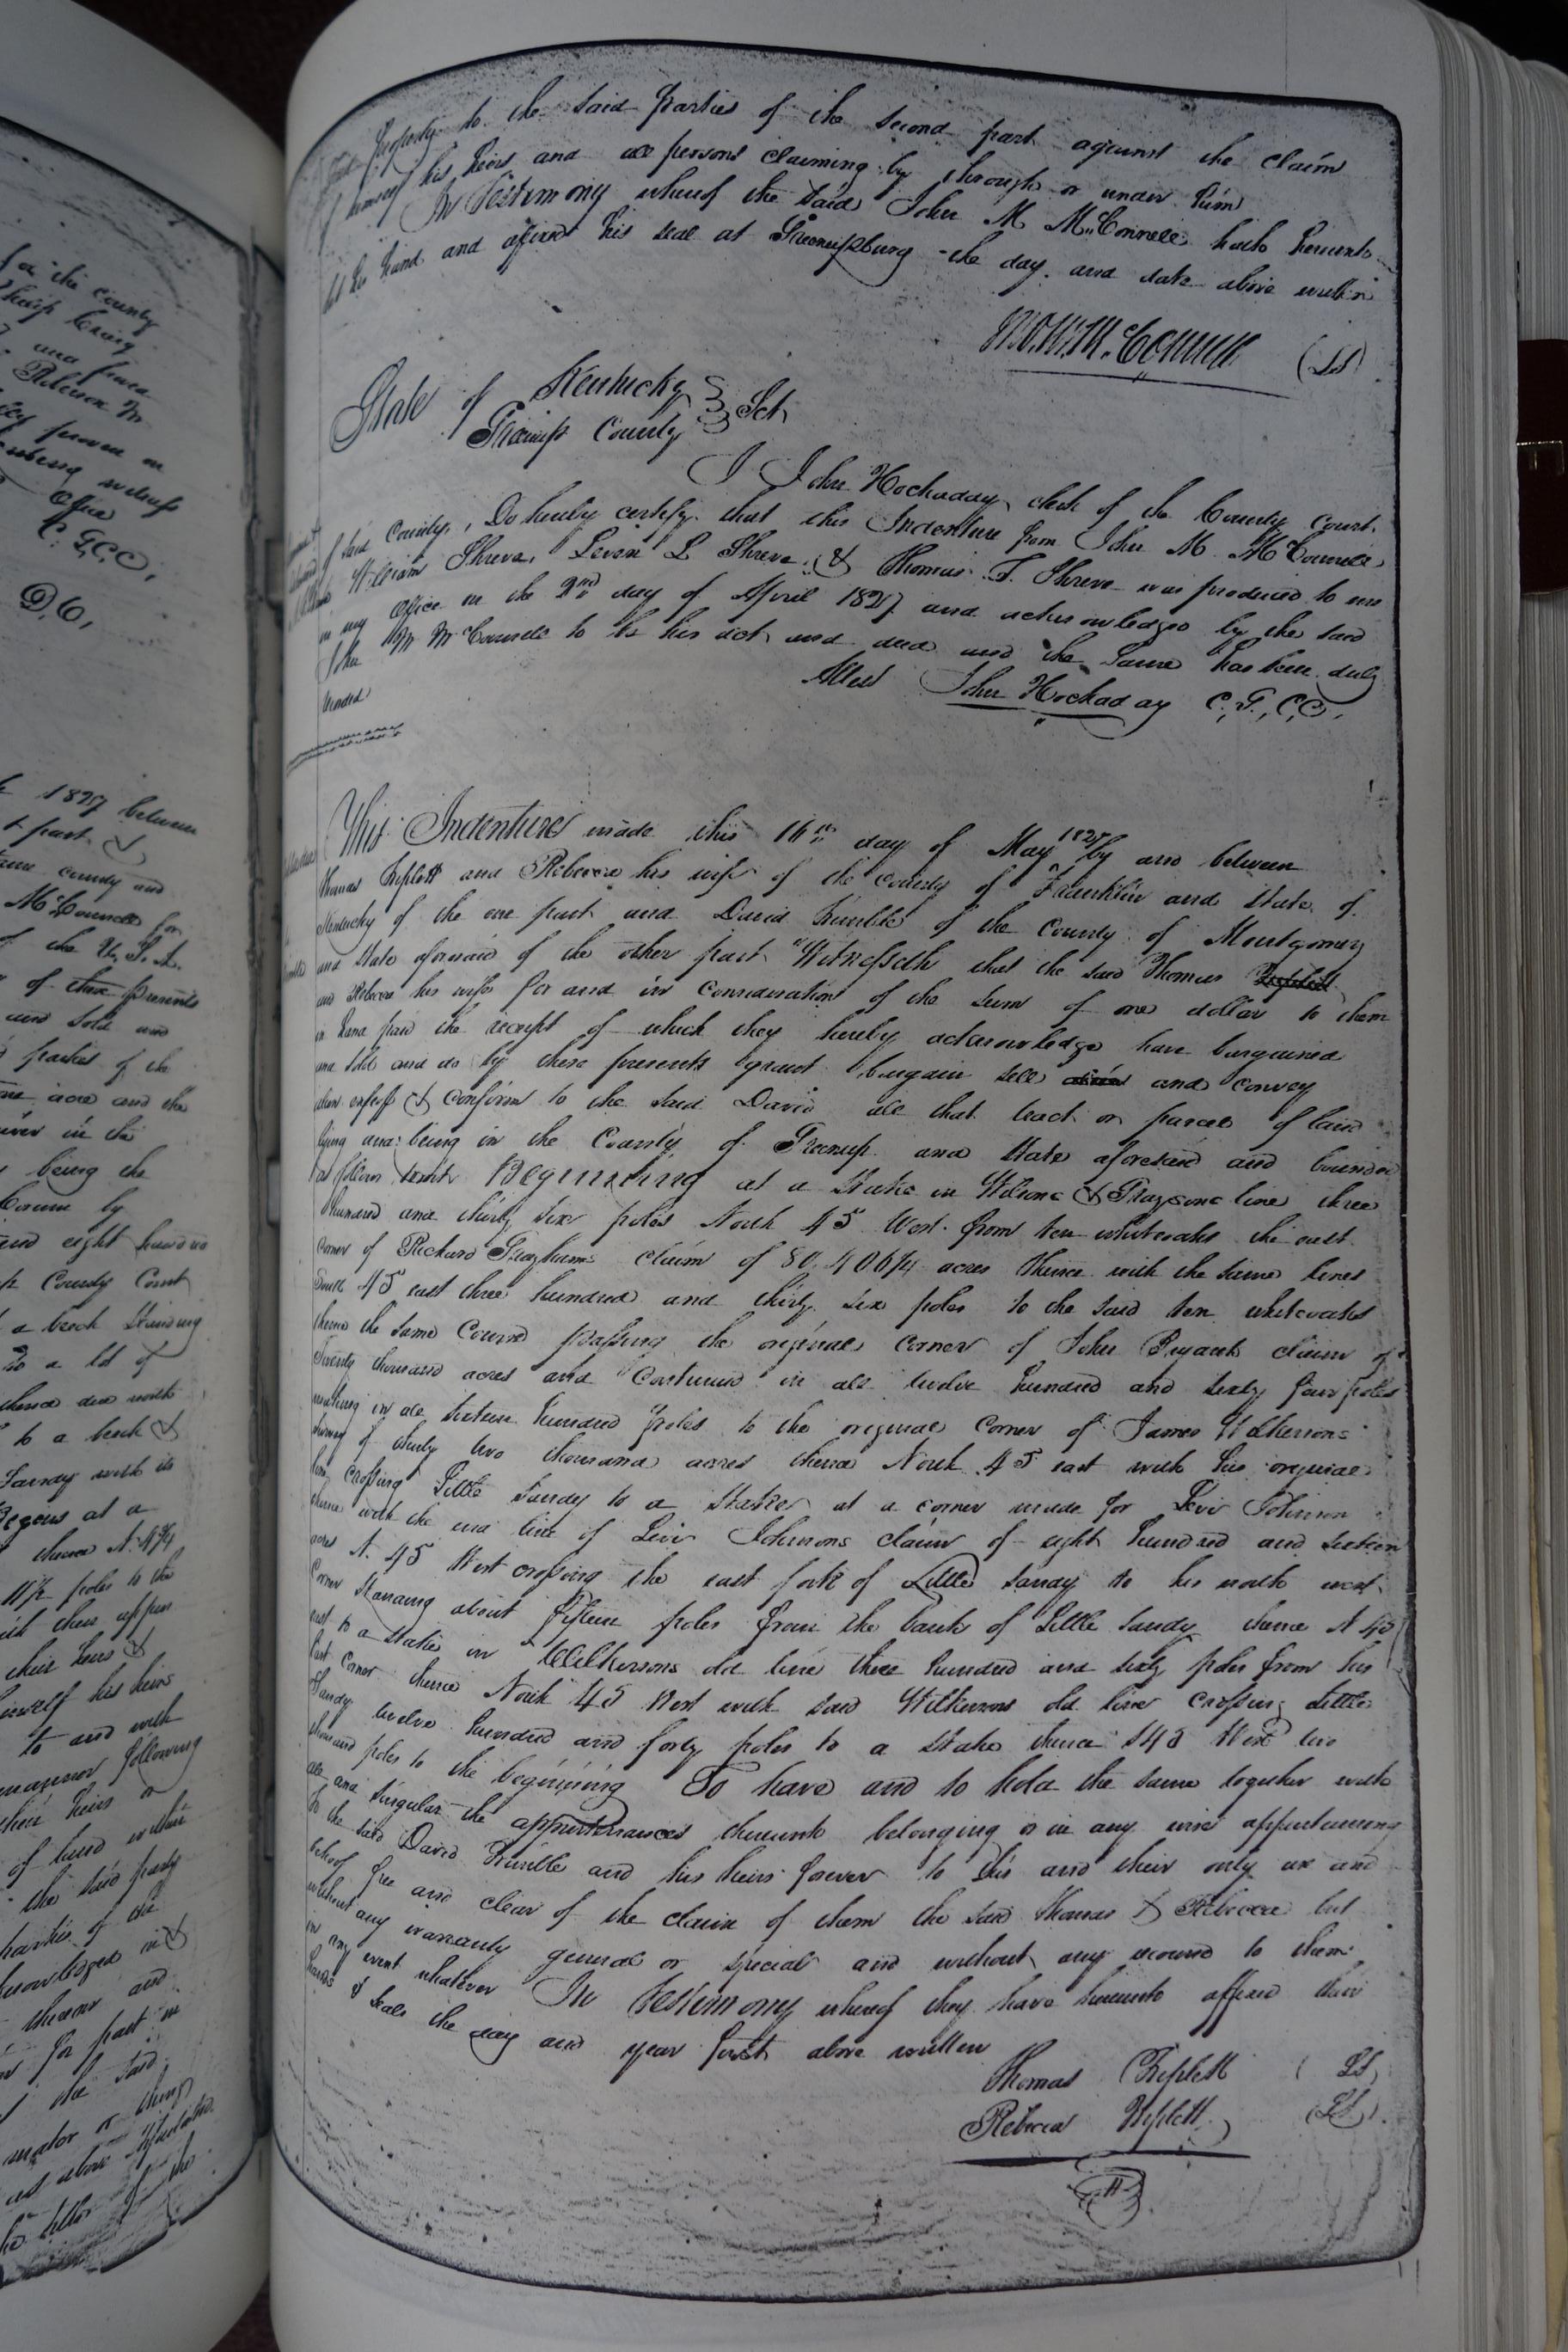 for the county
Craig
and
Peterson M
proven on
witness
Office
C. G.C.C,
D,C,
1827 between
part &
same county and
McConnell for
of the U,S,A,
of these presents
and sold and
parties of the
one acre and the
river in the
being the
by
and eight hundred
County Court
a beech Standing
to a lot of
thence due north
to a beech &
Sandy with its
Begins at a
thence N. 43/4
11 1/2 poles to the
with their upper
their heirs &
himself his heirs
to and with
manner following
their heirs or
of land within
the said party
parties of the
thereon and
part in
the said
or thing
as above
the
property to the said parties of the second part against the claim
of himself his heirs and all persons claiming by through or under him
In Testimony whereof the said John M McConnell hath hereunto
set his hand and affixed his seal at Greenupsburg the day and date above written
McConnell (LS)
State of Kentucky
Greenup County Sct
I John Hockaday clerk of the County Court
of said County, Do hereby certify that this Indenture from John M McConnell
William Shreve, Leven L Shreve & Thomas T. Shreve was produced to me
in my office on the 2nd day of April 1827 and acknowledged by the said
John M McConnell to be his act and deed and the same has been duly
Attest John Hockaday C, G, C,C,
This Indenture made this 16th day of May 1827 by and between
Thomas Triplett and Rebecca his wife of the county of Franklin and State of
Kentucky of the one part and David Trimble of the County of Montgomery
and State aforesaid of the other part Witnesseth that the said Thomas Triplett
and Rebecca his wife for and in consideration of the sum of one dollar to them
in hand paid the receipt of which they hereby acknowledge have bargained
and sold and do by these presents grant bargain sell and convey
alien enfeoff & confirm to the said David all that tract or parcel of land
lying and being in the County of Greenup and State aforesaid and bounded
as follows towit Beginning at a Stake in Wilsons & Graysons line three
hundred and thirty six poles North 45 West from ten whiteoaks the east
corner of Richard Grayhams claim of 80,406 1/4 acres thence with the same lines
South 45 east three hundred and thirty six poles to the said ten whiteoaks
thence the same Course passing the original corner of John Bryants claim of
Twenty thousand acres and Continued in all twelve hundred and sixty four poles
making in all sixteen hundred poles to the original corner of James Wilkersons
survey of thirty two thousand acres thence North 45 east with his original
line crossing Little Sandy to a Stake at a corner made for Levi Johnson
thence with the line of Levi Johnsons claim of eight hundred and sixteen
acres N. 45 West crossing the east fork of Little Sandy to his north west
Corner Standing about fifteen poles from the bank of Little Sandy thence N 45
east to a Stake in Wilkersons old line three hundred and sixty poles from his
East Corner thence North 45 West with said Wilkersons old line crossing Little
Sandy twelve hundred and forty poles to a Stake thence S45 West two
thousand poles to the beginning To have and to hold the same together with
all and singular the appurtenances thereunto belonging or in any wise appertaining
to the said David Trimble and his heirs forever to his and their only use and
behoof free and clear of the claim of them the said Thomas & Rebecca but
without any warranty general or special and without any recourse to them
in any event whatever In Testimony whereof they have hereunto affixed their
hands & seals the day and year first above written
Thomas Triplett (LS)
Rebecca Triplett (LS)